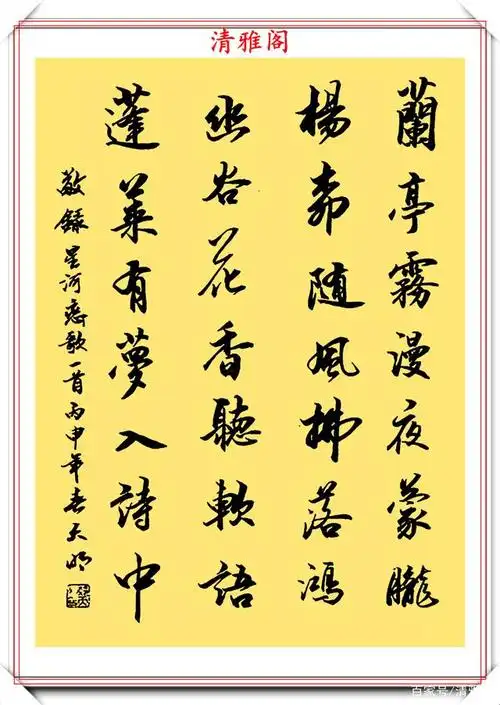 清雅阁
蘭亭霧漫夜蒙朧
楊柳随風拂落鴻
幽谷花香聽軟語
蓬萊有夢入詩中
敬録星河恋歌一首丙申年春天明
百家号/清雅